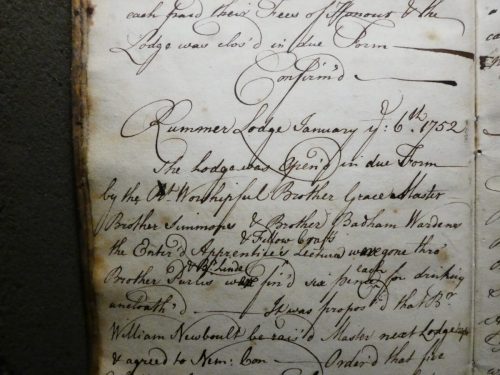 each paid their Fees of Honour & the
Lodge was clos'd in due Form
Confirm'd
Rummer Lodge January yᵉ: 6th. 1752
The Lodge was Open'd in due Form
by the Rt Worshipful Brother Grace Master
Brother Simmons & Brother Badham Wardens
& Fellow Crafts
the Enter'd Apprentice's Lecture were gone thro'
each
Brother Purlis were fin'd six pence for drinking
It was propos'd that Br
William Newboult be rais'd Master next Lodge
& agreed to Nem: Con Order'd that